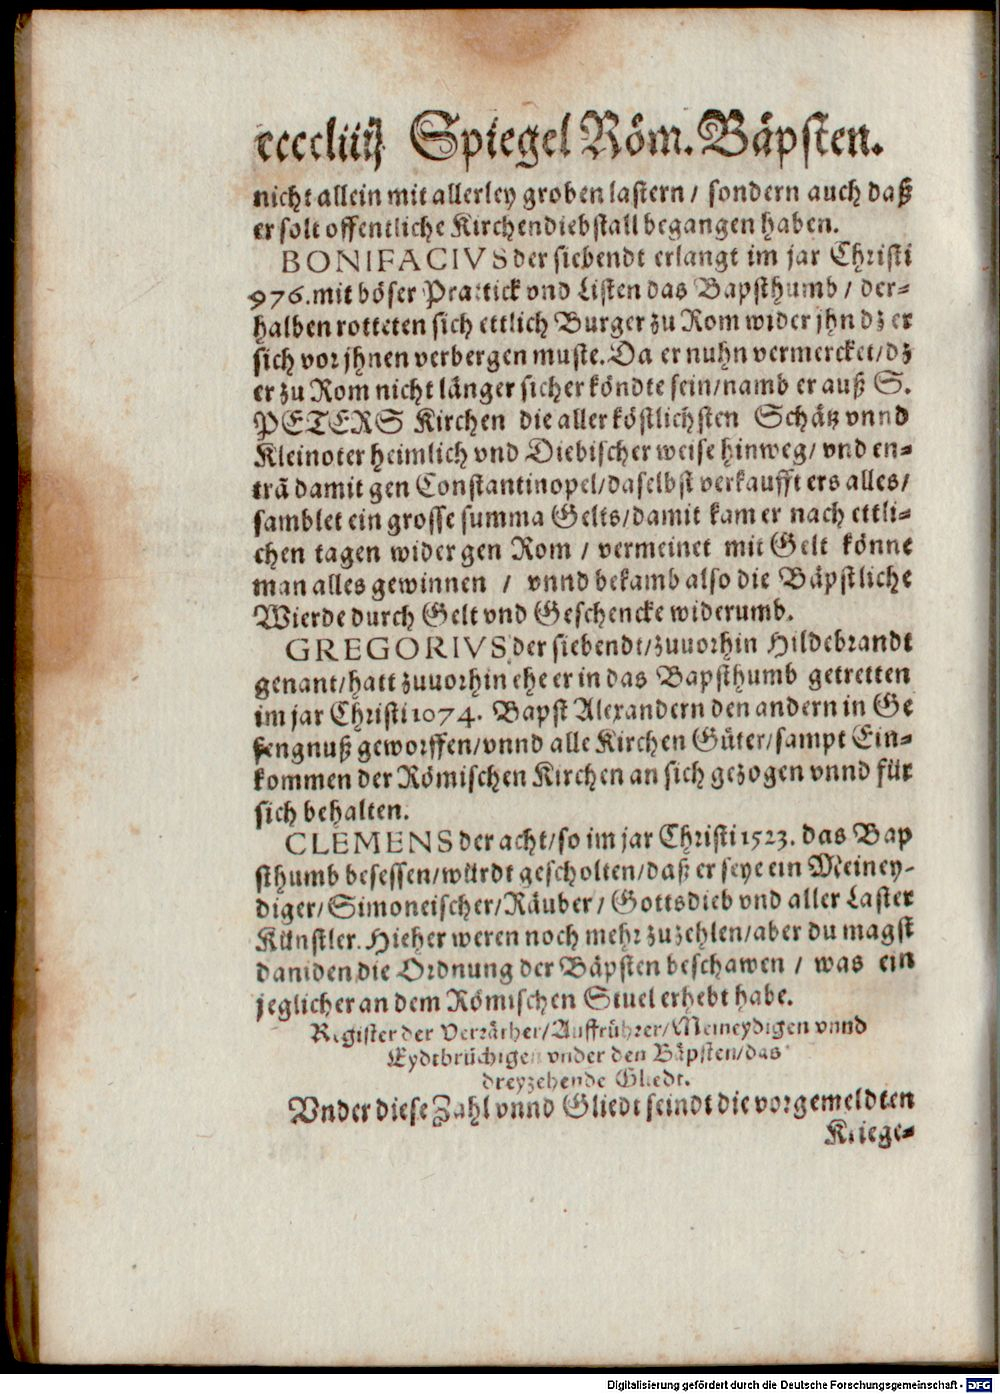 ccccliiij Spiegel Röm. Bäpsten.
nicht allein mit allerley groben lastern / sondern auch daß
er solt offentliche Kirchendiebstall begangen haben.
BONIFACIVS der siebendt erlangt im jar Christi
976. mit böser Practick vnd Listen das Bapsthumb / der=
halben rotteten sich ettlich Burger zu Rom wider jhn dz er
sich vor jhnen verbergen muste. Da er nuhn vermercket/dz
er zu Rom nicht länger sicher köndte sein/namb er auß S.
PETERS Kirchen die aller köstlichsten Schätz vnnd
Kleinoter heimlich vnd Diebischer weise hinweg/ vnd en=
trã damit gen Constantinopel/daselbst verkaufft ers alles/
samblet ein grosse summa Gelts/damit kam er nach ettli=
chen tagen wider gen Rom / vermeinet mit Gelt könne
man alles gewinnen / vnnd bekamb also die Bäpstliche
Wierde durch Gelt vnd Geschencke widerumb.
GREGORIVS der siebendt/zuuorhin Hildebrandt
genant/hatt zuuorhin ehe er in das Bapsthumb getretten
im jar Christi 1074. Bapst Alexandern den andern in Ge
fengnuß geworffen/vnnd alle Kirchen Güter/sampt Ein=
kommen der Römischen Kirchen an sich gezogen vnnd für
sich behalten.
CLEMENS der acht/so im jar Christi 1523. das Bap
sthumb besessen/würdt gescholten/daß er seye ein Meiney-
diger/Simoneischer/Räuber/Gottsdieb vnd aller Laster
Künstler. Hieher weren noch mehr zuzehlen/aber du magst
daniden die Ordnung der Bäpsten beschawen / was ein
jeglicher an dem Römischen Stuel erhebt habe.
Register der Verräther/Auffrührer/Meineydigen vnnd
Eydtbrüchigen vnder den Bäpsten/das
dreyzehende Gliedt.
Vnder diese Zahl vnnd Gliedt seindt die vorgemeldten
Kriege=
Digitalisierung gefördert durch die Deutsche Forschungsgemeinschaft - DFG